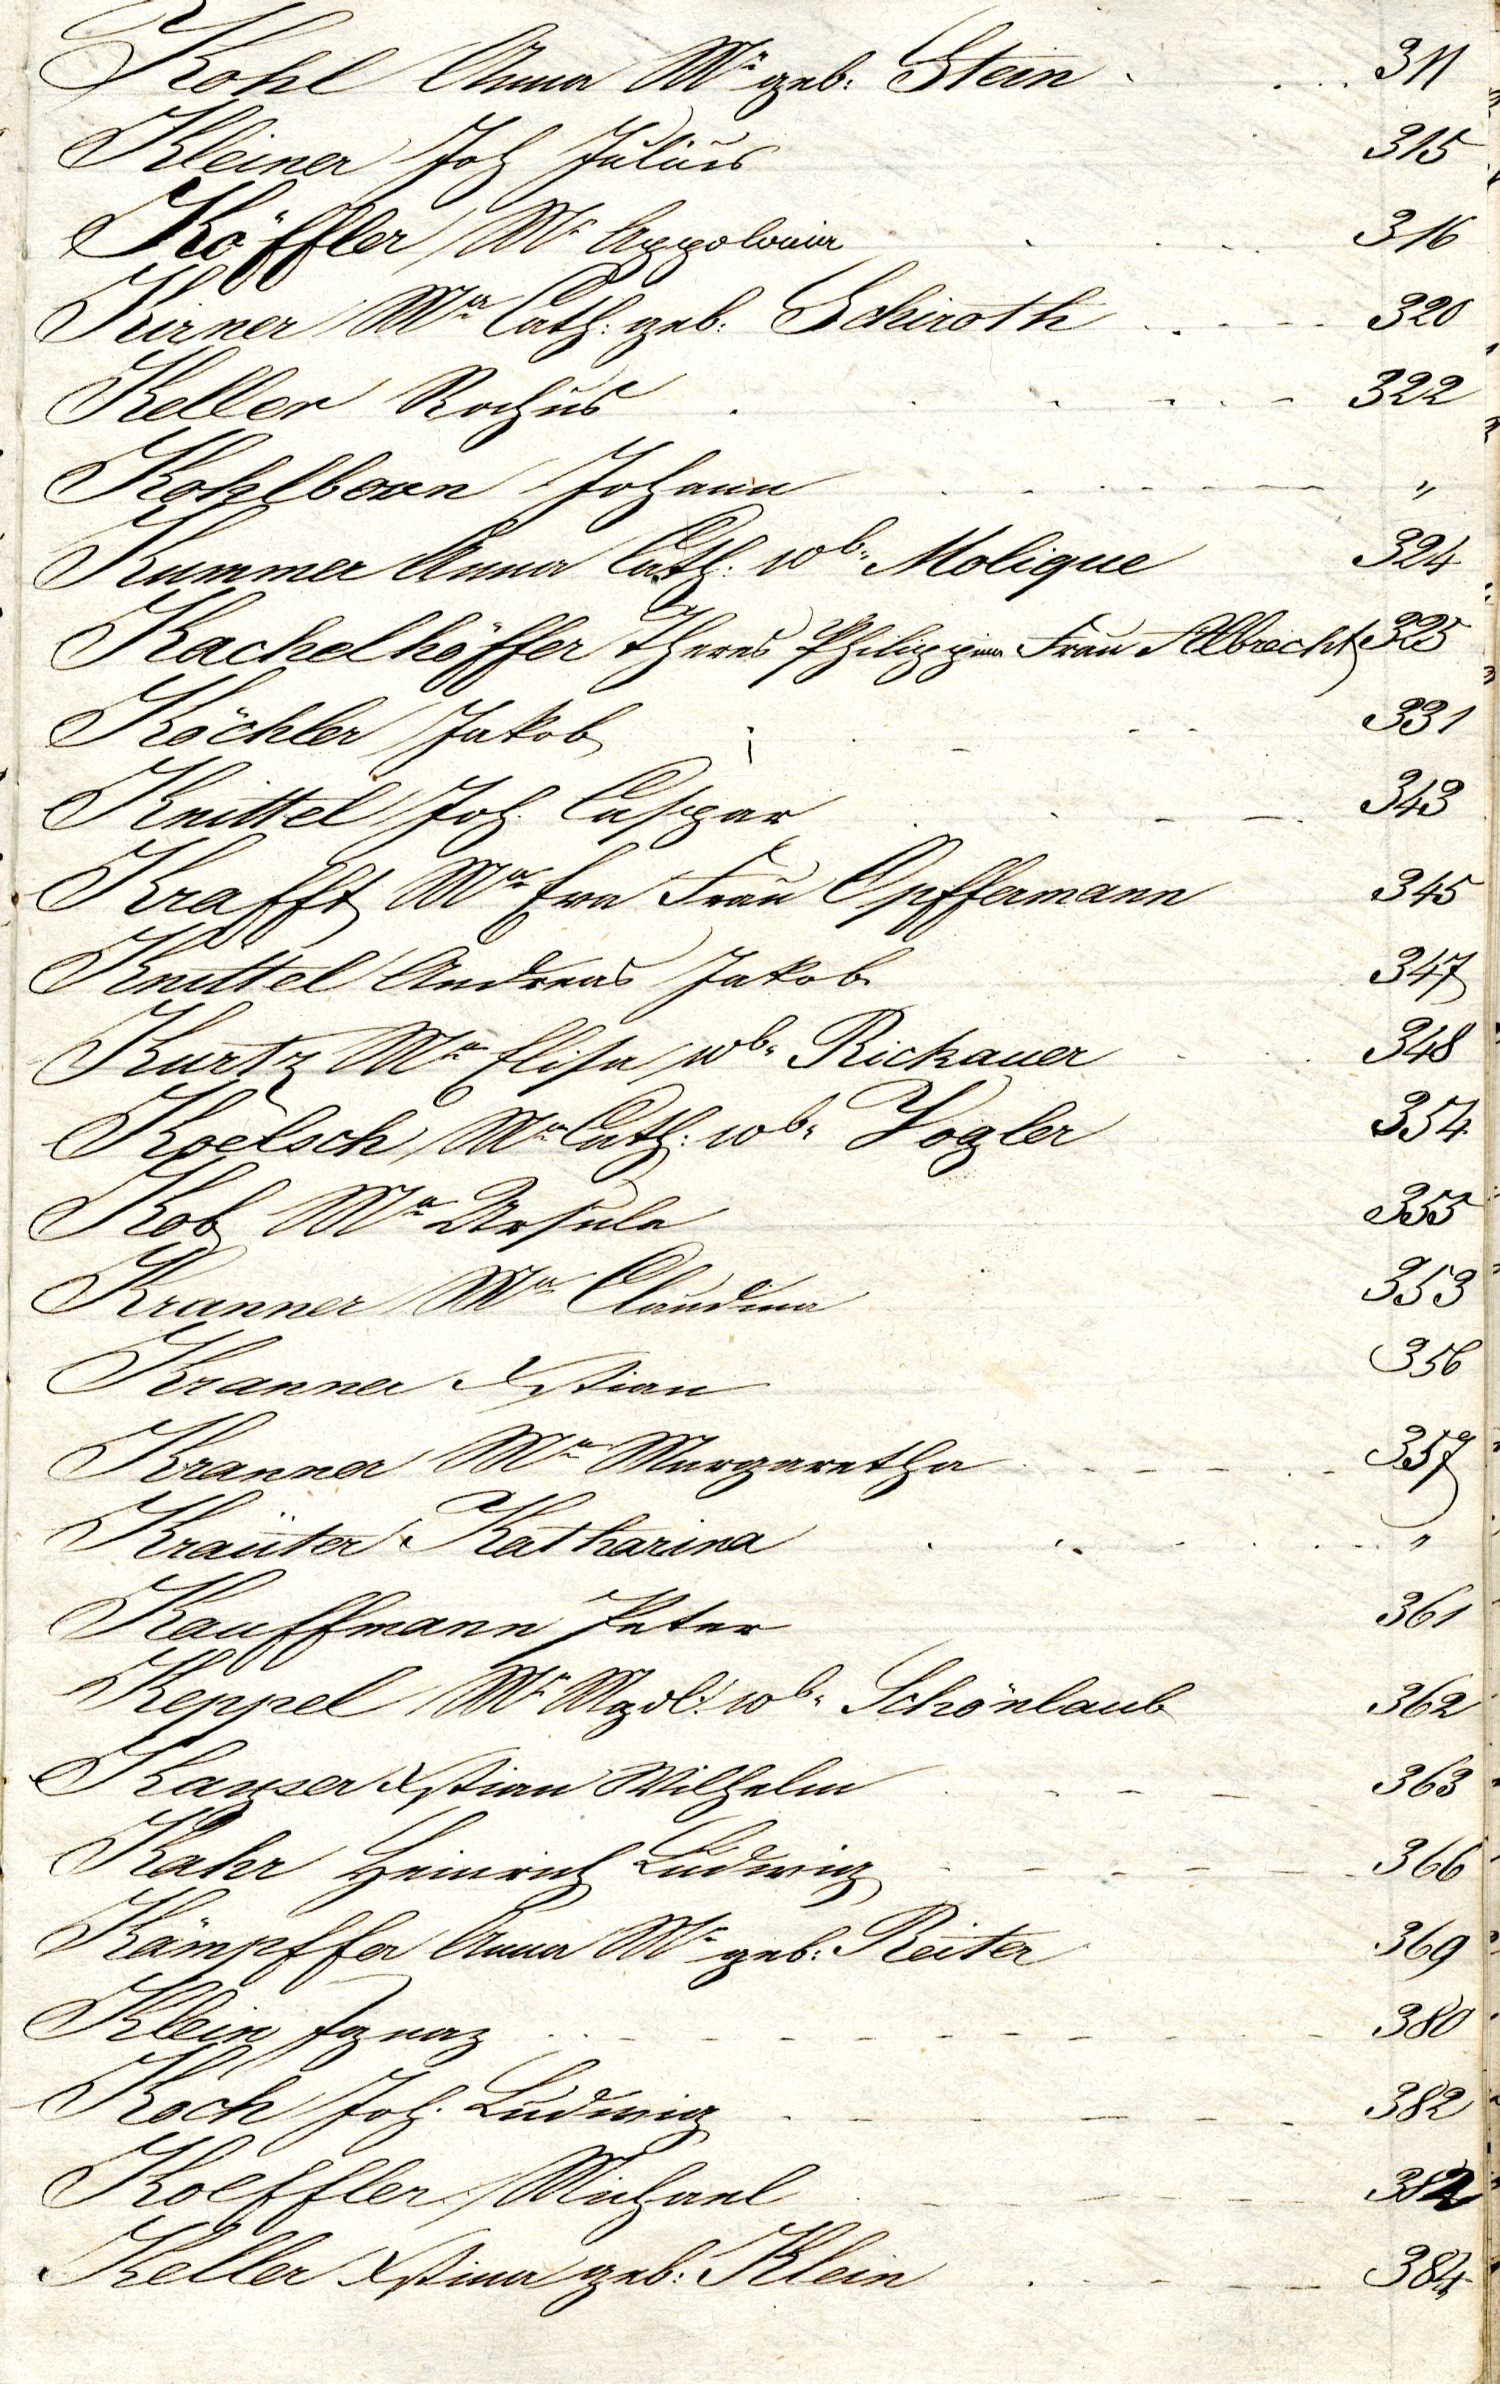 Kohl Anna Ma geb: Stein 311
Kleiner Joh Julius 315
Köffler Ma Appolonia 316
Kirner Ma Cath: geb: Schiroth 320
Keller Rochus 322
Kohlborn Johann "
Kummer Anna Cath: wb. Molique 324
Kachelhöffer Theres Philippina Frau Albrecht 325
Köchler Jakob 331
Knittel Joh. Caspar 343
Krafft Ma Eva Frau Opffermann 345
Knittel Andreas Jakob 347
Kurtz Ma Elisa wb. Rickauer 348
Koelsch Ma Cath: wb. Vogler 354
Kob Ma Ursula 355
Kranner Ma Claudina 353
Kranner Xstian 356
Kranner Ma Margaretha 357
Kraüter Katharina "
Kauffmann Peter 361
Keppel Ma Mgdl: wb. Schönlaub 362
Kayser Xstian Wilhelm 363
Kahr Heinrich Ludwig 366
Kämpffer Anna Ma geb: Reiter 369
Klein Ignaz 380
Koch Joh. Ludwig 382
Koeffler Michael 382
Keller Xstina geb: Klein 384